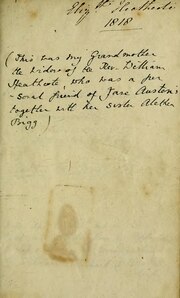 Eliz.th Heathcote
1818
(This was my Grandmother
the Widow of the Rev. William
Heathcote, who was a per
-sonal friend of Jane Austen's
together with her sister Alethea
Bigg)